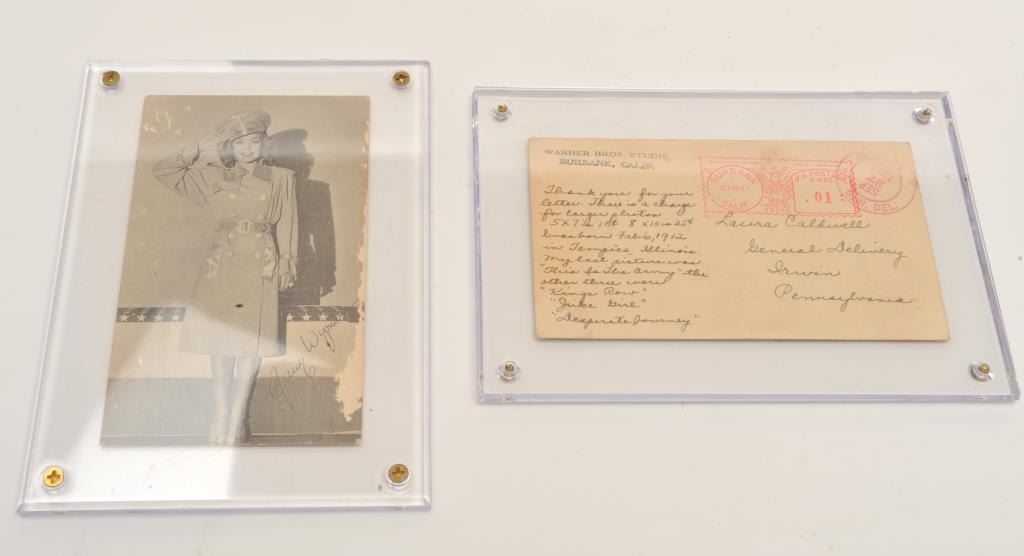 Jane Wyman
WARNER BROS. STUDIO
BURBANK, CALIF.
Thank you for your
letter. There is a charge
for larger photos
5 X 7 is 10¢ 8 X 10 is 25¢
I was born Feb 6, 1912
in Tampico, Illinois.
My last picture was
"This Is The Army" the
other three were
"Kings Row"
"Juke Girl"
"Desperate Journey"
BURBANK
CALIF.
U.S. POSTAGE
PAID
.01
DEL.
Laura Caldwell
General Delivery
Irwin
Pennsylvania